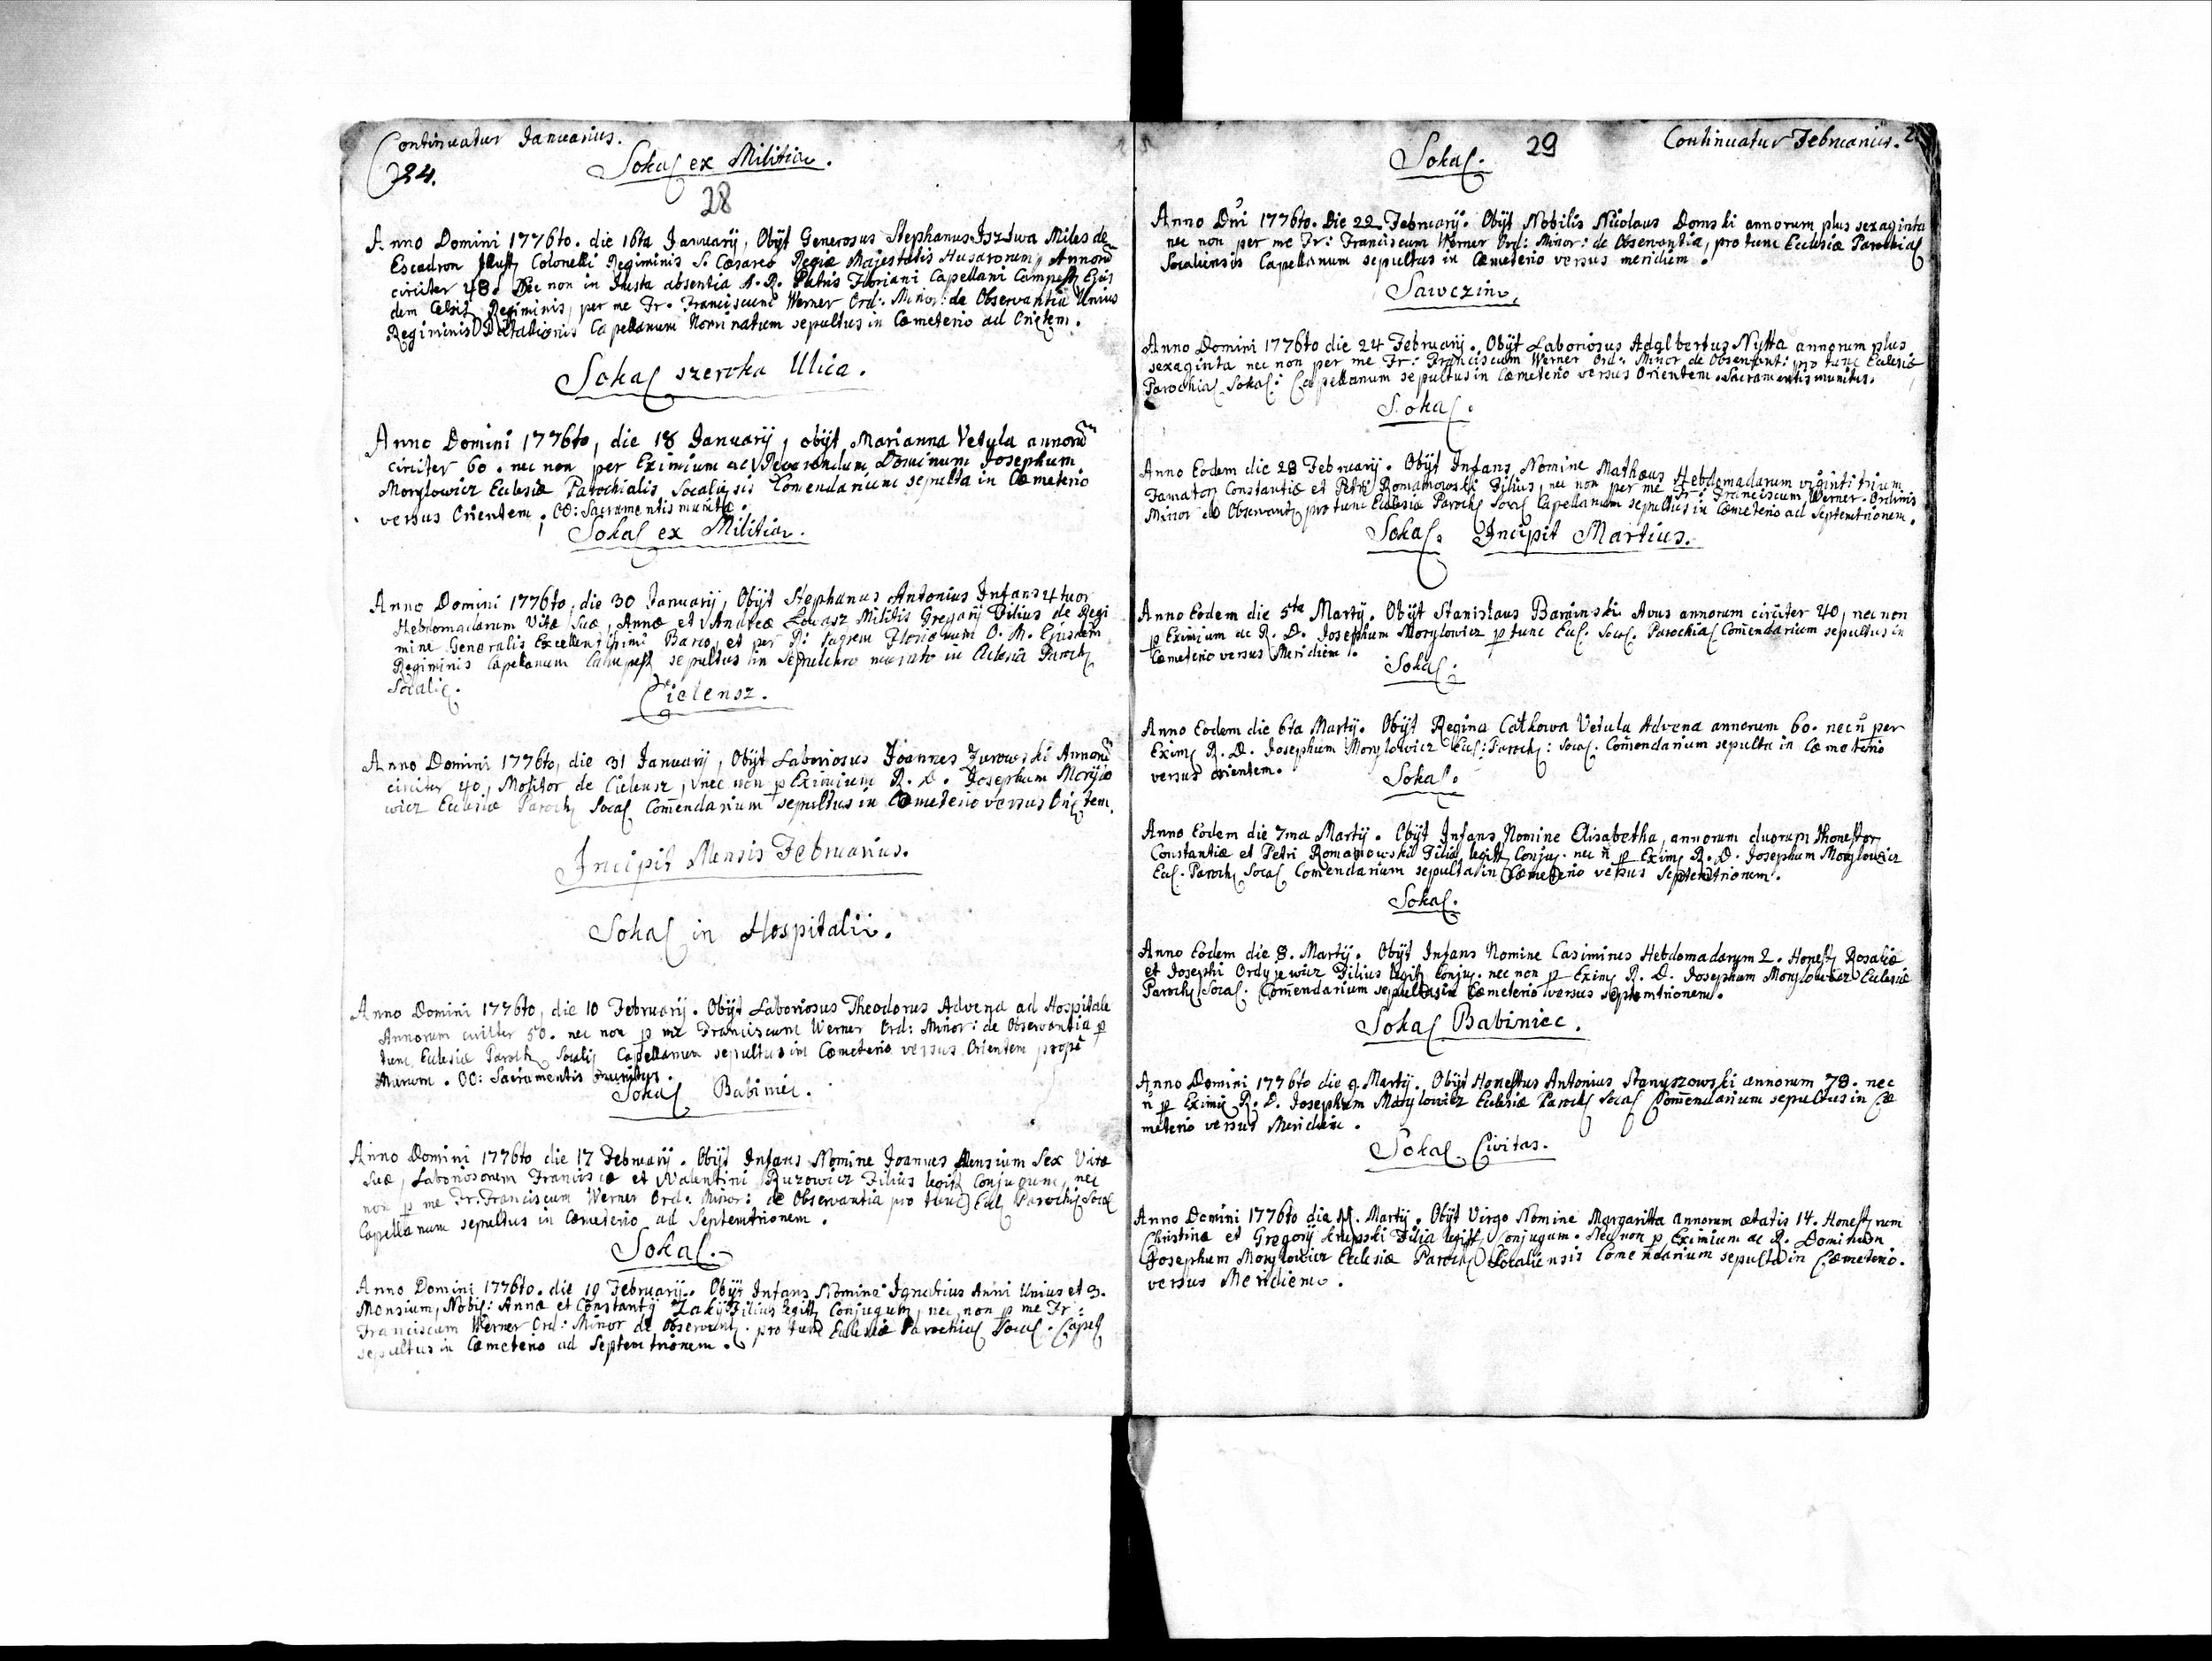 Continuatur Januarius.
24.
Sokal ex Militia.
28
Anno Domini 1776to. die 16ta Januarij, Obijt Generosus Stephanus Miles de
Escadron Colonelli Regiminis S. Cæsareo Regiæ Majestatis Husarorum, Annorũ
circiter 48. Nec non in Justa absentia A. R. Patris Floriani Capellani Campest Ejus
dem Celsis Regiminis, per me Fr. Franciscum Werner Ord: Minor: de Observantia Unius
Regiminis Capellanum Nominatum sepultus in Cæmeterio ad Orientem.
Sokal szeroka Ulica.
Anno Domini 1776to, die 18 Januarij, obijt Marianna Vetula annorũ
circiter 60. nec non per Eximium ac Reverendum Dominum Josephum
Morylowicz Eclesiæ Parochialis Socaliensis Comendarium sepulta in Cæmeterio
versus Orientem. OO: Sacramentis munita.
Sokal ex Militia.
Anno Domini 1776to, die 30 Januarij, Obijt Stephanus Antonius Infans 4tuor
Hebdomadarum Vitæ Suæ, Annæ et Andreæ Militis Gregarij Filius de Regi
mine Generalis Excellentissimi Baro, et per Florianum Ejusdem
Regiminis Capellanum Campest sepultus in Sepulchro murato in Eclesia Paroch
Socalie.
Cielensz.
Anno Domini 1776to, die 31 Januarij, Obijt Laboriosus Joannes Zurowski Annorũ
circiter 40, Molitor de Cielensz, nec non p Eximium R. D. Josephum Morylo
wicz Eclesiæ Paroch Socal Comendarium sepultus in Cæmeterio versus Orietem.
Incipit Mensis Februarius.
Sokal in Hospitali.
Anno Domini 1776to, die 10 Februarij. Obijt Laboriosus Theodorus Advena ad Hospitale
Annorum circiter 50. nec non p me Franciscum Werner Ord: Minor: de Observantia p
tunc Eclesiæ Paroch Socali Capellanum sepultus in Cæmeterio versus Orientem propè
Murum. OO: Sacramentis munitus.
Sokal Babiniec.
Anno Domini 1776to die 17 Februarij. Obijt Infans Nomine Joannes Mensium Sex Vitæ
Suæ, Laboriosorum Franciscæ et Valentini Burowicz Filius legit Conjugum, nec
non p me Fr: Franciscum Werner Ord: Minor: de Observantia pro tunc Ecl Parochi Socal
Capellanum sepultus in Cæmeterio ad Septemtrionem.
Sokal.
Anno Domini 1776to. die 19 Februarij. Obijt Infans Nomine Ignatius Anni Unius et 3.
Mensium, Nobil: Annæ et Constantij Filius legitt Conjugum, nec non p me Fr:
Franciscum Werner Ord: Minor de Observant. pro tunc Eclesiæ Parochial Socal. Capel
sepultus in Cæmeterio ad Septemtrionem.
Sokal.
29
Continuatur Februarius.
Anno Dnĩ 1776to. Die 22 Februarij. Obijt Nobilis Nicolaus Domski annorum plus sexaginta
nec non per me Fr: Franciscum Werner Ord: Minor: de Observantia, pro tunc Eclesiæ Parochial
Socaliensis Capellanum sepultus in Cæmeterio versus meridiem.
Sawczin
Anno Domini 1776to die 24 Februarij. Obijt Laboriosus Adalbertus Nytta annorum plus
sexaginta nec non per me Fr: Franciscum Werner Ord: Minor de Observant: pro tunc Eclesiæ
Parochial Sokal: Capellanum sepultus in Cæmeterio versus Orientem. Sacramentis munitus.
Sokal.
Anno Eodem die 28 Februarij. Obijt Infans Nomine Mathæus Hebdomadarum viginti trium
Famator Constantiæ et Petri Romanowski Filius, nec non per me Fr: Franciscum Werner Ordinis
Minor de Observant pro tunc Eclesiæ Paroch Socal Capellanum sepultus in Cæmeterio ad Septemtrionem.
Sokal. Incipit Martius.
Anno Eodem die 5ta Martij. Obijt Stanislaus Baraniski Avus annorum circiter 40, nec non
p Eximium ac R. D. Josephum Morylowicz p tunc Ecl. Socal. Parochial Com̃endarium sepultus in
Cæmeterio versus Meridiem.
Sokal.
Anno Eodem die 6ta Martij. Obijt Regina Catkowa Vetula Advena annorum 60. nec ñ per
Exim R. D. Josephum Morylowicz Ecl: Paroch: Socal. Comendarium sepulta in Cæmeterio
versus orientem.
Sokal.
Anno Eodem die 7ma Martij. Obijt Infans Nomine Elisabetha, annorum duorum Honestor
Constantiæ et Petri Romanowski Filia legitt Conjug. nec ñ p Exim R. D. Josephum Morylowicz
Ecl. Paroch Socal Comendarium sepulta in Cæmeterio versus Septemtrionem.
Sokal.
Anno Eodem die 8. Martij. Obijt Infans Nomine Casimirus Hebdomadarum 2. Honest Rosaliæ
et Josephi Ordyjewicz Filius legit Conjug. nec non p Exim R. D. Josephum Morylowicz Eclesiæ
Paroch Socal. Com̃endarium sepultus in Cæmeterio versus septemtrionem.
Sokal Babiniec.
Anno Domini 1776to die 9 Martij. Obijt Honestus Antonius Stanyszowski annorum 78. nec
ñ p Eximiũ R. D. Josephum Morylowicz Eclesiæ Paroch Socal Com̃endarium sepultus in Cæ
meterio versus Meridiem.
Sokal Civitas.
Anno Domini 1776to die 11. Martij. Obijt Virgo Nomine Margaritta annorum ætatis 14. Honest rum
Christinæ et Gregorij Krupski Filia legitt Conjugum. Nec non p Eximium ac R. Dominum
Josephum Morylowicz Eclesiæ Paroch Socaliensis Comendarium sepulta in Cæmeterio
versus Meridiem.